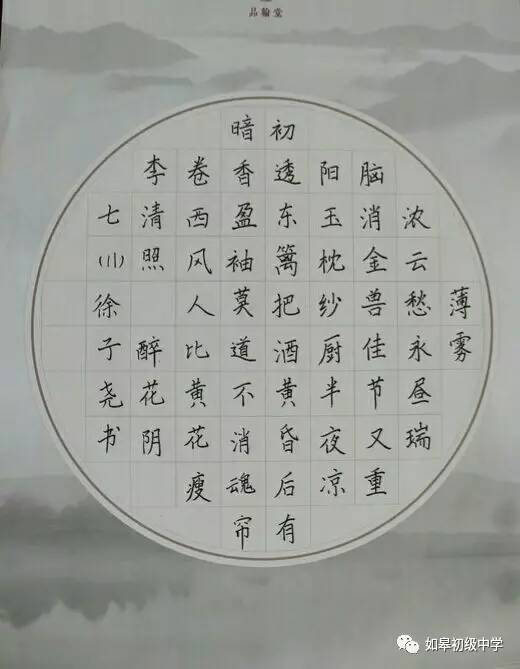 品翰堂
薄雾
浓云愁永昼瑞
脑消金兽佳节又重
阳玉枕纱厨半夜凉
初透东篱把酒黄昏后有
暗香盈袖莫道不消魂帘
卷西风人比黄花瘦
李清照 醉花阴
七(11)徐子尧书
如皋初级中学